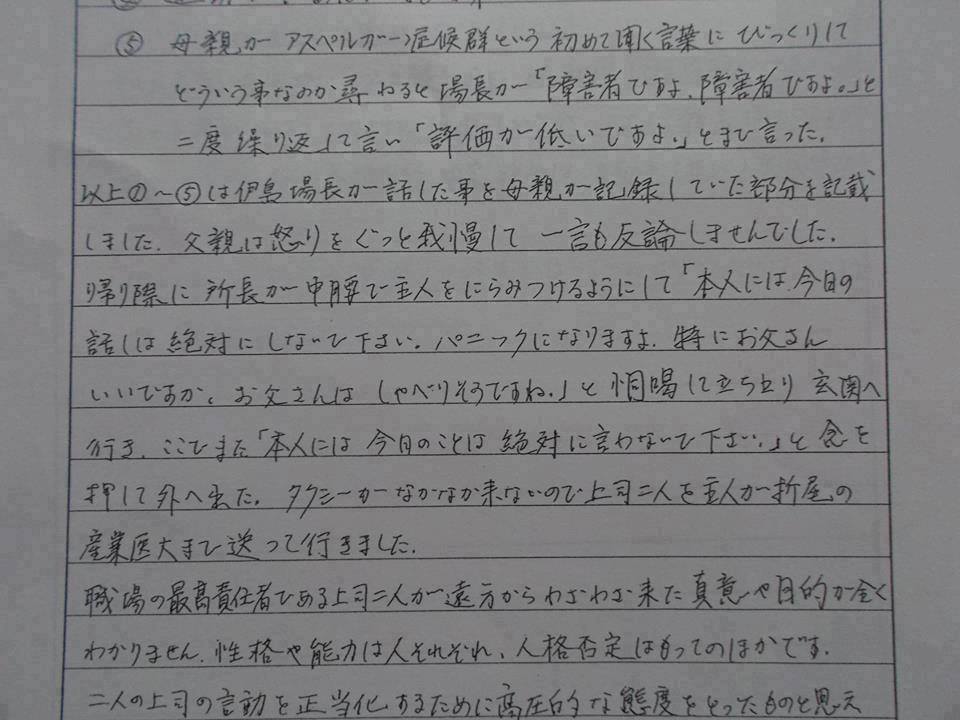 ⑤ 母親がアスペルガー症候群という初めて聞く言葉にびっくりして
どういう事なのか尋ねると場長が「障害者ですよ、障害者ですよ。」と
二度繰り返して言い「評価が低いですよ。」とまで言った。
以上①～⑤は伊島場長が話した事を母親が記録していた部分を記載
しました。父親は怒りをぐっと我慢して一言も反論しませんでした。
帰り際に所長が中腰で主人をにらみつけるようにして「本人には今日の
話しは絶対にしないで下さい。パニックになりますよ。特にお父さん
いいですか。お父さんはしゃべりそうですね。」と恫喝して立ち上り玄関へ
行き、ここでまた「本人には今日のことは絶対に言わないで下さい。」と念を
押して外へ出た。タクシーがなかなか来ないので上司二人を主人が折尾の
産業医大まで送って行きました。
職場の最高責任者である上司二人が遠方からわざわざ来た真意や目的が全く
わかりません。性格や能力は人それぞれ、人格否定はもってのほかです。
二人の上司の言動を正当化するために高圧的な態度をとったものと思え